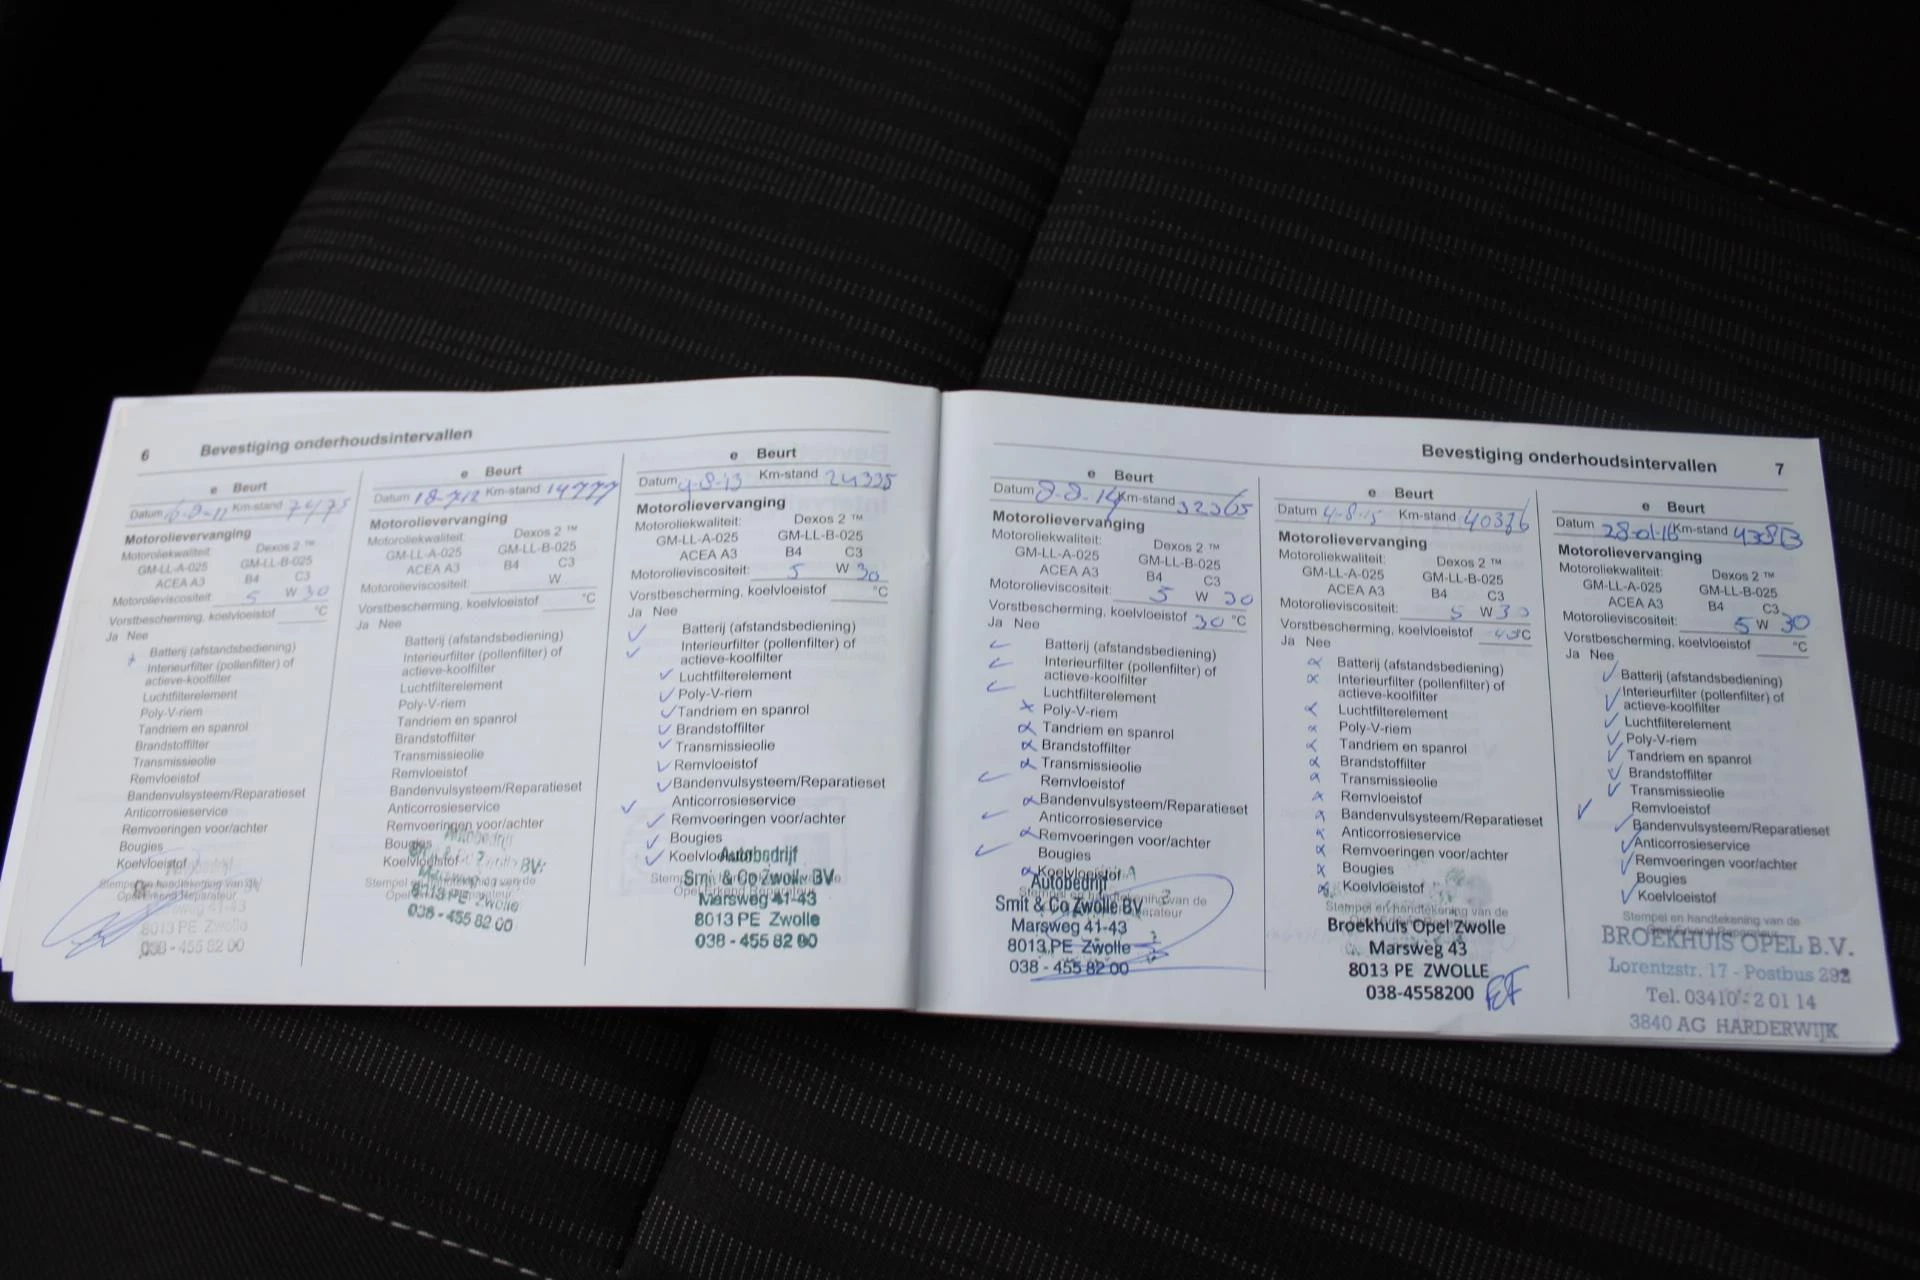 6 Bevestiging onderhoudsintervallen
e Beurt
Datum 16-8-11 Km-stand 7475
Motorolievervanging
Motoroliekwaliteit: Dexos 2 ™
GM-LL-A-025 GM-LL-B-025
ACEA A3 B4 C3
Motorolieviscositeit 5 W 30
Vorstbescherming, koelvloeistof °C
Ja Nee
Batterij (afstandsbediening)
Interieurfilter (pollenfilter) of
actieve-koolfilter
Luchtfilterelement
Poly-V-riem
Tandriem en spanrol
Brandstoffilter
Transmissieolie
Remvloeistof
Bandenvulsysteem/Reparatieset
Anticorrosieservice
Remvoeringen voor/achter
Bougies
Koelvloeistof
Stempel en handtekening van de
Opel Erkend Reparateur
8013 PE Zwolle
038 - 455 82 00
e Beurt
Datum 18-7-12 Km-stand 14777
Motorolievervanging
Motoroliekwaliteit: Dexos 2 ™
GM-LL-A-025 GM-LL-B-025
ACEA A3 B4 C3
Motorolieviscositeit: W
Vorstbescherming, koelvloeistof °C
Ja Nee
Batterij (afstandsbediening)
Interieurfilter (pollenfilter) of
actieve-koolfilter
Luchtfilterelement
Poly-V-riem
Tandriem en spanrol
Brandstoffilter
Transmissieolie
Remvloeistof
Bandenvulsysteem/Reparatieset
Anticorrosieservice
Remvoeringen voor/achter
Bougies
Koelvloeistof
BV
Stempel en handtekening van de
8013 PE Zwolle
038 - 455 82 00
e Beurt
Datum 4-8-13 Km-stand 24335
Motorolievervanging
Motoroliekwaliteit: Dexos 2 ™
GM-LL-A-025 GM-LL-B-025
ACEA A3 B4 C3
Motorolieviscositeit: 5 W 30
Vorstbescherming, koelvloeistof °C
Ja Nee
Batterij (afstandsbediening)
Interieurfilter (pollenfilter) of
actieve-koolfilter
Luchtfilterelement
Poly-V-riem
Tandriem en spanrol
Brandstoffilter
Transmissieolie
Remvloeistof
Bandenvulsysteem/Reparatieset
Anticorrosieservice
Remvoeringen voor/achter
Bougies
Koelvloeistof
Autobedrijf
Smit & Co Zwolle BV
Marsweg 41-43
8013 PE Zwolle
038 - 455 82 00
Bevestiging onderhoudsintervallen 7
e Beurt
Datum 8-8-14 Km-stand 32365
Motorolievervanging
Motoroliekwaliteit: Dexos 2 ™
GM-LL-A-025 GM-LL-B-025
ACEA A3 B4 C3
Motorolieviscositeit: 5 W 30
Vorstbescherming, koelvloeistof 30 °C
Ja Nee
Batterij (afstandsbediening)
Interieurfilter (pollenfilter) of
actieve-koolfilter
Luchtfilterelement
Poly-V-riem
Tandriem en spanrol
Brandstoffilter
Transmissieolie
Remvloeistof
Bandenvulsysteem/Reparatieset
Anticorrosieservice
Remvoeringen voor/achter
Bougies
Koelvloeistof
Autobedrijf
Smit & Co Zwolle BV
Marsweg 41-43
8013 PE Zwolle
038 - 455 82 00
e Beurt
Datum 4-8-15 Km-stand 40376
Motorolievervanging
Motoroliekwaliteit: Dexos 2 ™
GM-LL-A-025 GM-LL-B-025
ACEA A3 B4 C3
Motorolieviscositeit: 5 W 30
Vorstbescherming, koelvloeistof °C
Ja Nee
Batterij (afstandsbediening)
Interieurfilter (pollenfilter) of
actieve-koolfilter
Luchtfilterelement
Poly-V-riem
Tandriem en spanrol
Brandstoffilter
Transmissieolie
Remvloeistof
Bandenvulsysteem/Reparatieset
Anticorrosieservice
Remvoeringen voor/achter
Bougies
Koelvloeistof
Stempel en handtekening van de
Broekhuis Opel Zwolle
Marsweg 43
8013 PE ZWOLLE
038-4558200
e Beurt
Datum 28-01-16 Km-stand 43813
Motorolievervanging
Motoroliekwaliteit: Dexos 2 ™
GM-LL-A-025 GM-LL-B-025
ACEA A3 B4 C3
Motorolieviscositeit: 5 W 30
Vorstbescherming, koelvloeistof °C
Ja Nee
Batterij (afstandsbediening)
Interieurfilter (pollenfilter) of
actieve-koolfilter
Luchtfilterelement
Poly-V-riem
Tandriem en spanrol
Brandstoffilter
Transmissieolie
Remvloeistof
Bandenvulsysteem/Reparatieset
Anticorrosieservice
Remvoeringen voor/achter
Bougies
Koelvloeistof
Stempel en handtekening van de
BROEKHUIS OPEL B.V.
Lorentzstr. 17 - Postbus 292
Tel. 03410 - 2 01 14
3840 AG HARDERWIJK